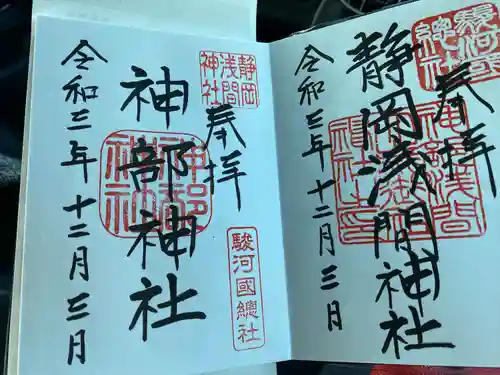 駿河國
總社
奉拝
静岡浅間神社
神部浅間
令和三年十二月三日
静岡
浅間
神社
奉拝
駿河國總社
神部神社
神部
神社
令和三年十二月三日